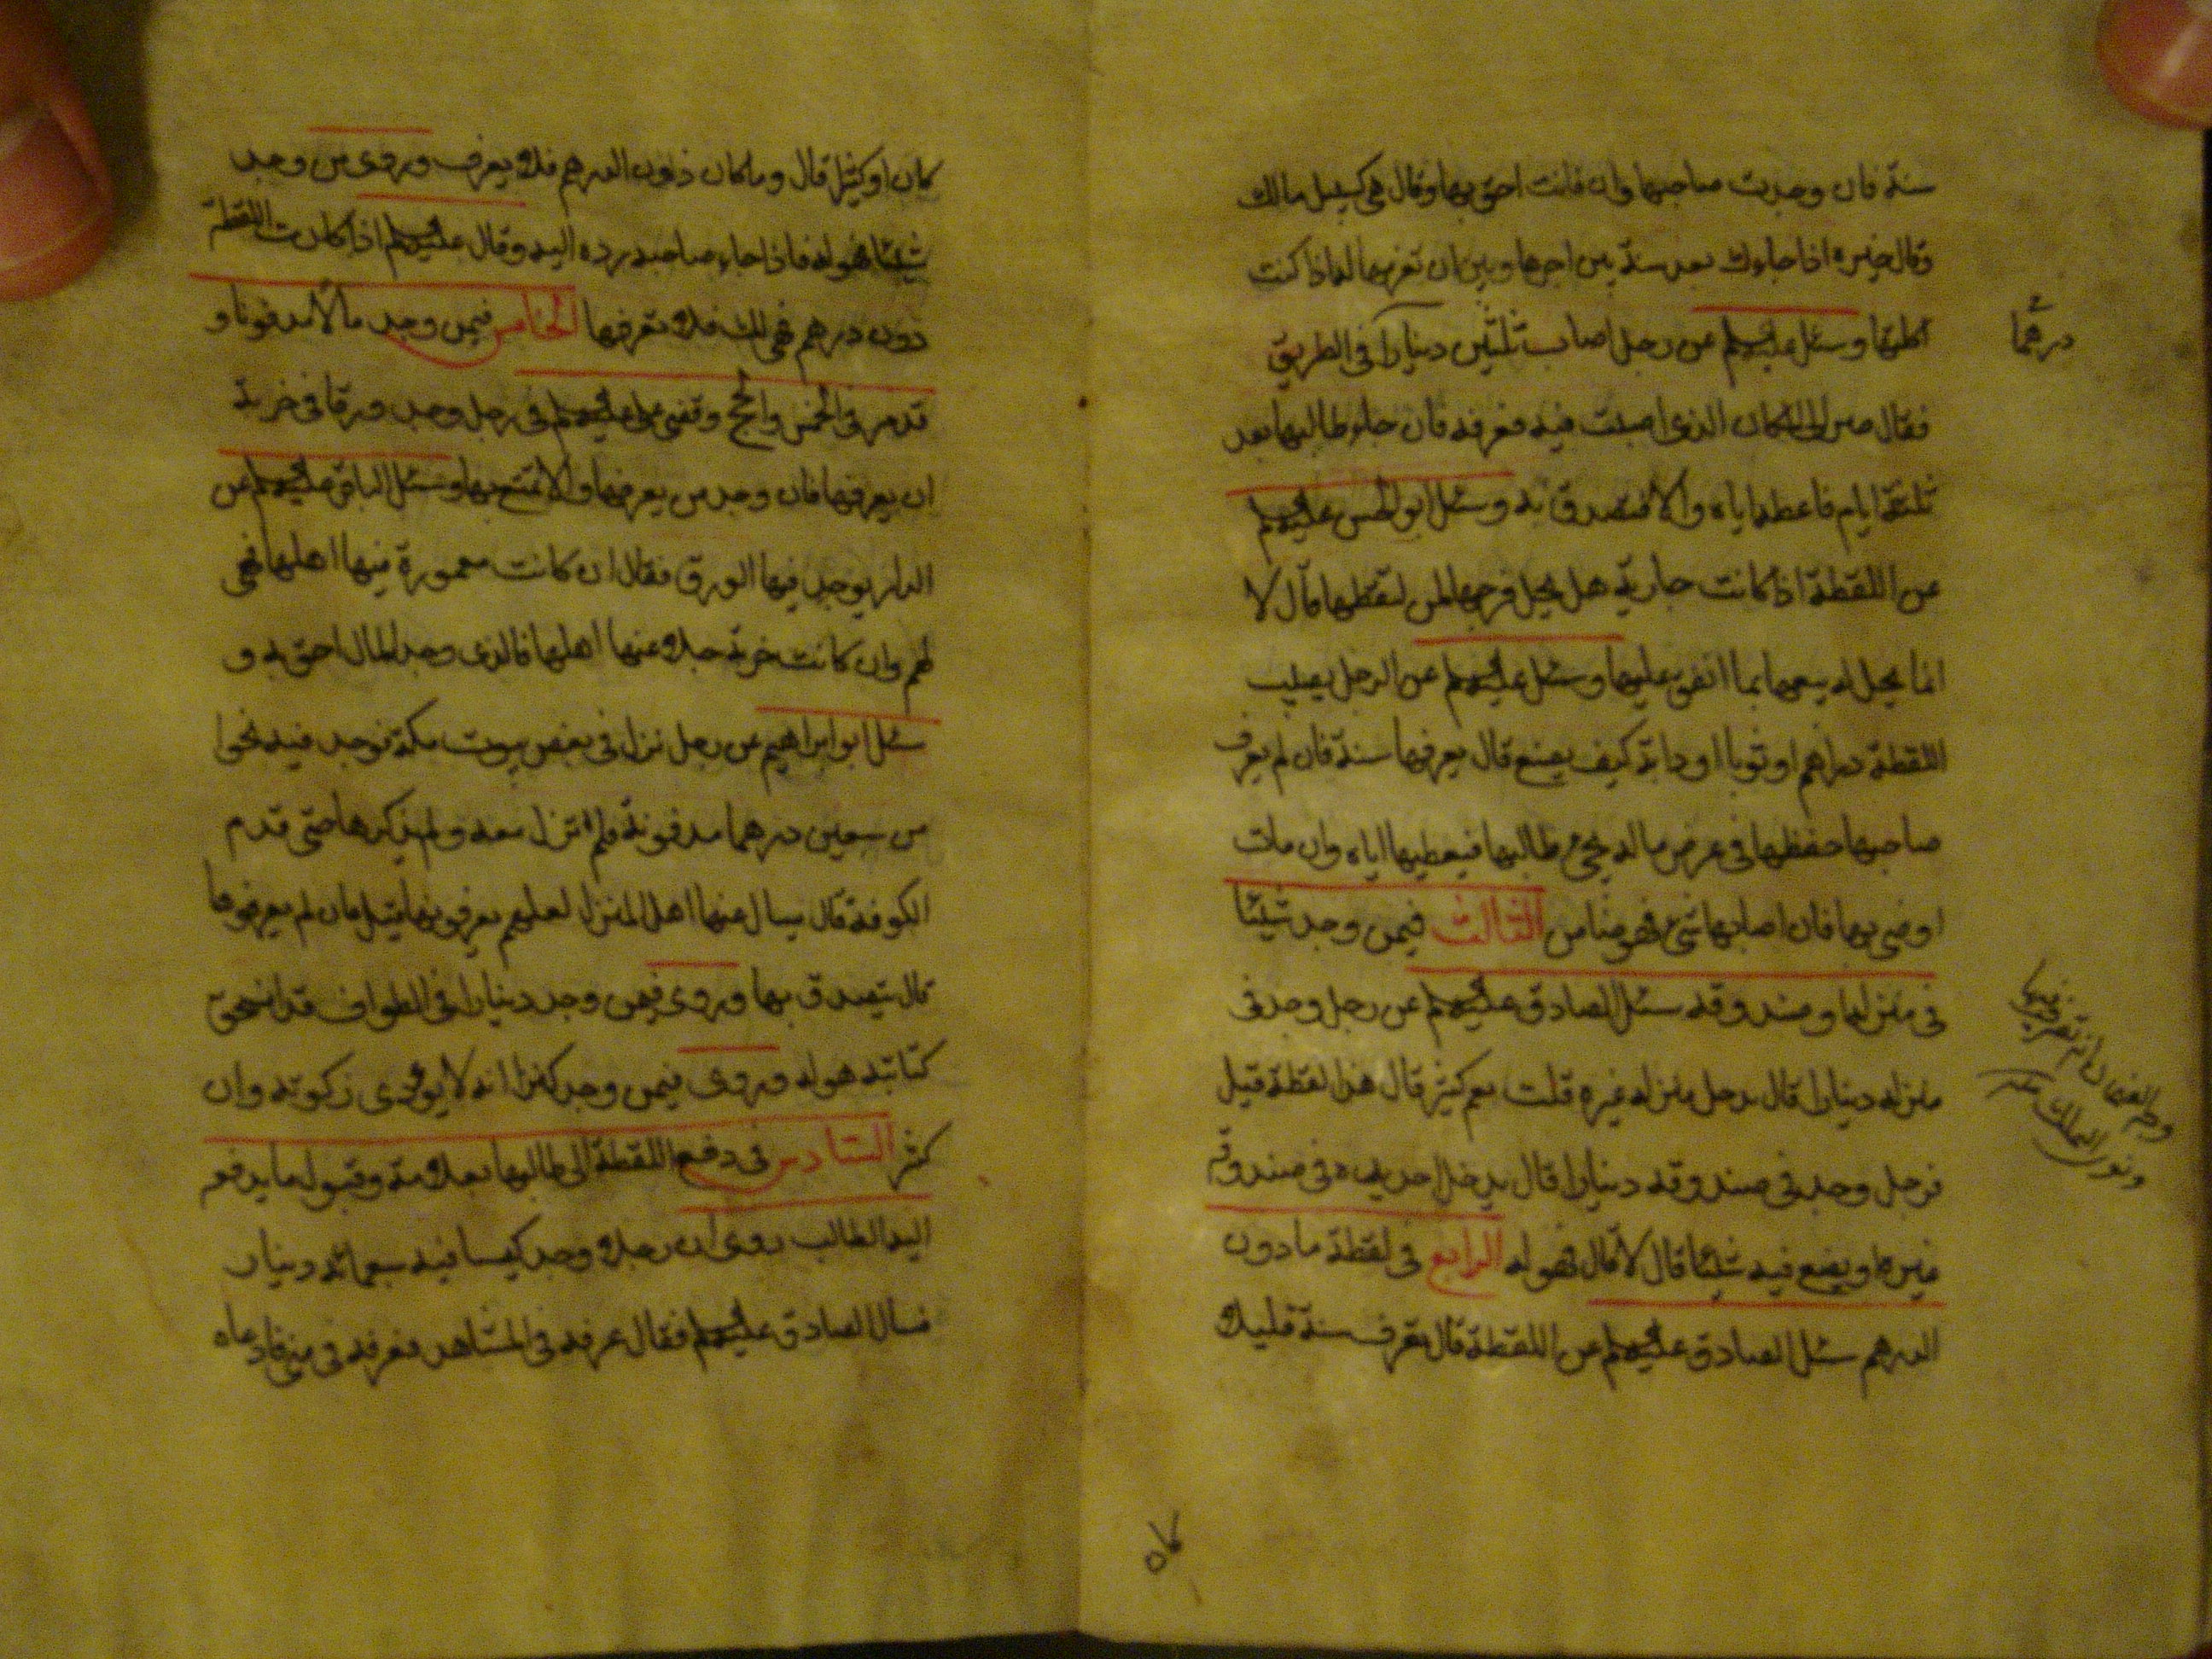 سنة فان وجدت صاحبها وان فانت احق بها وقال هى كسبيل مالك
وقال خيره اذا جاءك بعد سنة بين اجرها وبين ان تغرمها له اذا كنت
اكلتها وسئل عليه السلم عن رجل اصاب ثلثين دينارا فى الطريق
درهما
فقال من الى المكان الذى اصبت فيه فعرفه فان جاء طالبها بعد
ثلثة ايام فاعطه اياه والا فتصدق به وسئل ابو الحسن عليه السلم
عن اللقطة اذا كانت جارية هل يحل فرجها لمن لتقطها قال لا
انما يحل له بيعها بما انفق عليها وسئل عليه السلم عن الرجل يصيب
اللقطة دراهم او ثوبا او دابة كيف يصنع قال يعرفها سنة فان لم يعرف
صاحبها حفظها فى عرض ماله يجىء طالبها فيعطيها اياه وان مات
اوصى بها فان اصابها شىء فهو ضامن الثالث فيمن وجد شيئا
فى منزله او صندوقه سئل الصادق عليه السلم عن رجل وجد فى
منزله دينارا قال يدخل منزله غيره قلت نعم كثير قال هذا لقطة قيل
فرجل وجد فى صندوقه دينارا قال يدخل احد يده فى صندوقه
غيره او يضع فيه شيئا قال لا قال فهو له الرابع فى لقطة ما دون
الدرهم سئل الصادق عليه السلم عن اللقطة قال تعرف سنة قليلا
كان او كثيرا قال وما كان دون الدرهم فلا يعرف وروى من وجد
شيئا فهو له فاذا جاء صاحبه رده اليه وقال عليه السلم اذا كانت اللقطة
دون درهم فهى لك فلا تعرفها الخامس فيمن وجد مالا مدفونا و
قد مر فى الخمس والحج وقضى على عليه السلم فى رجل وجد ورقا فى خربة
ان يعرفها فان وجد من يعرفها والا تمتع بها وسئل الباقر عليه السلم عن
الدار يوجد فيها الورق فقال ان كانت معمورة فيها اهلها فهى
لهم وان كانت خربة جلا عنها اهلها فالذى وجد المال احق به و
سئل ابو ابراهيم عن رجل نزل فى بعض بيوت مكة فوجد فيه نحوا
من سبعين درهما مدفونة فلم تزل معه ولم يذكرها حتى قدم
الكوفة قال يسال عنها اهل المنزل لعلهم يعرفونها قيل فان لم يعرفوها
قال يتصدق بها وروى فيمن وجد دينارا فى الطواف قد انسحق
كتابته هو له وروى فيمن وجد كنزا انه لا يؤدى زكوته وان
كثر السادس فى دفع اللقطة الى طالبها بعلامة وقبول ما يدفع
اليه الطالب روى ان رجلا وجد كيسا فيه سبعمائة دينار
فسال الصادق عليه السلم فقال عرفه فى المشاهد فعرفه فى منى فادعاه